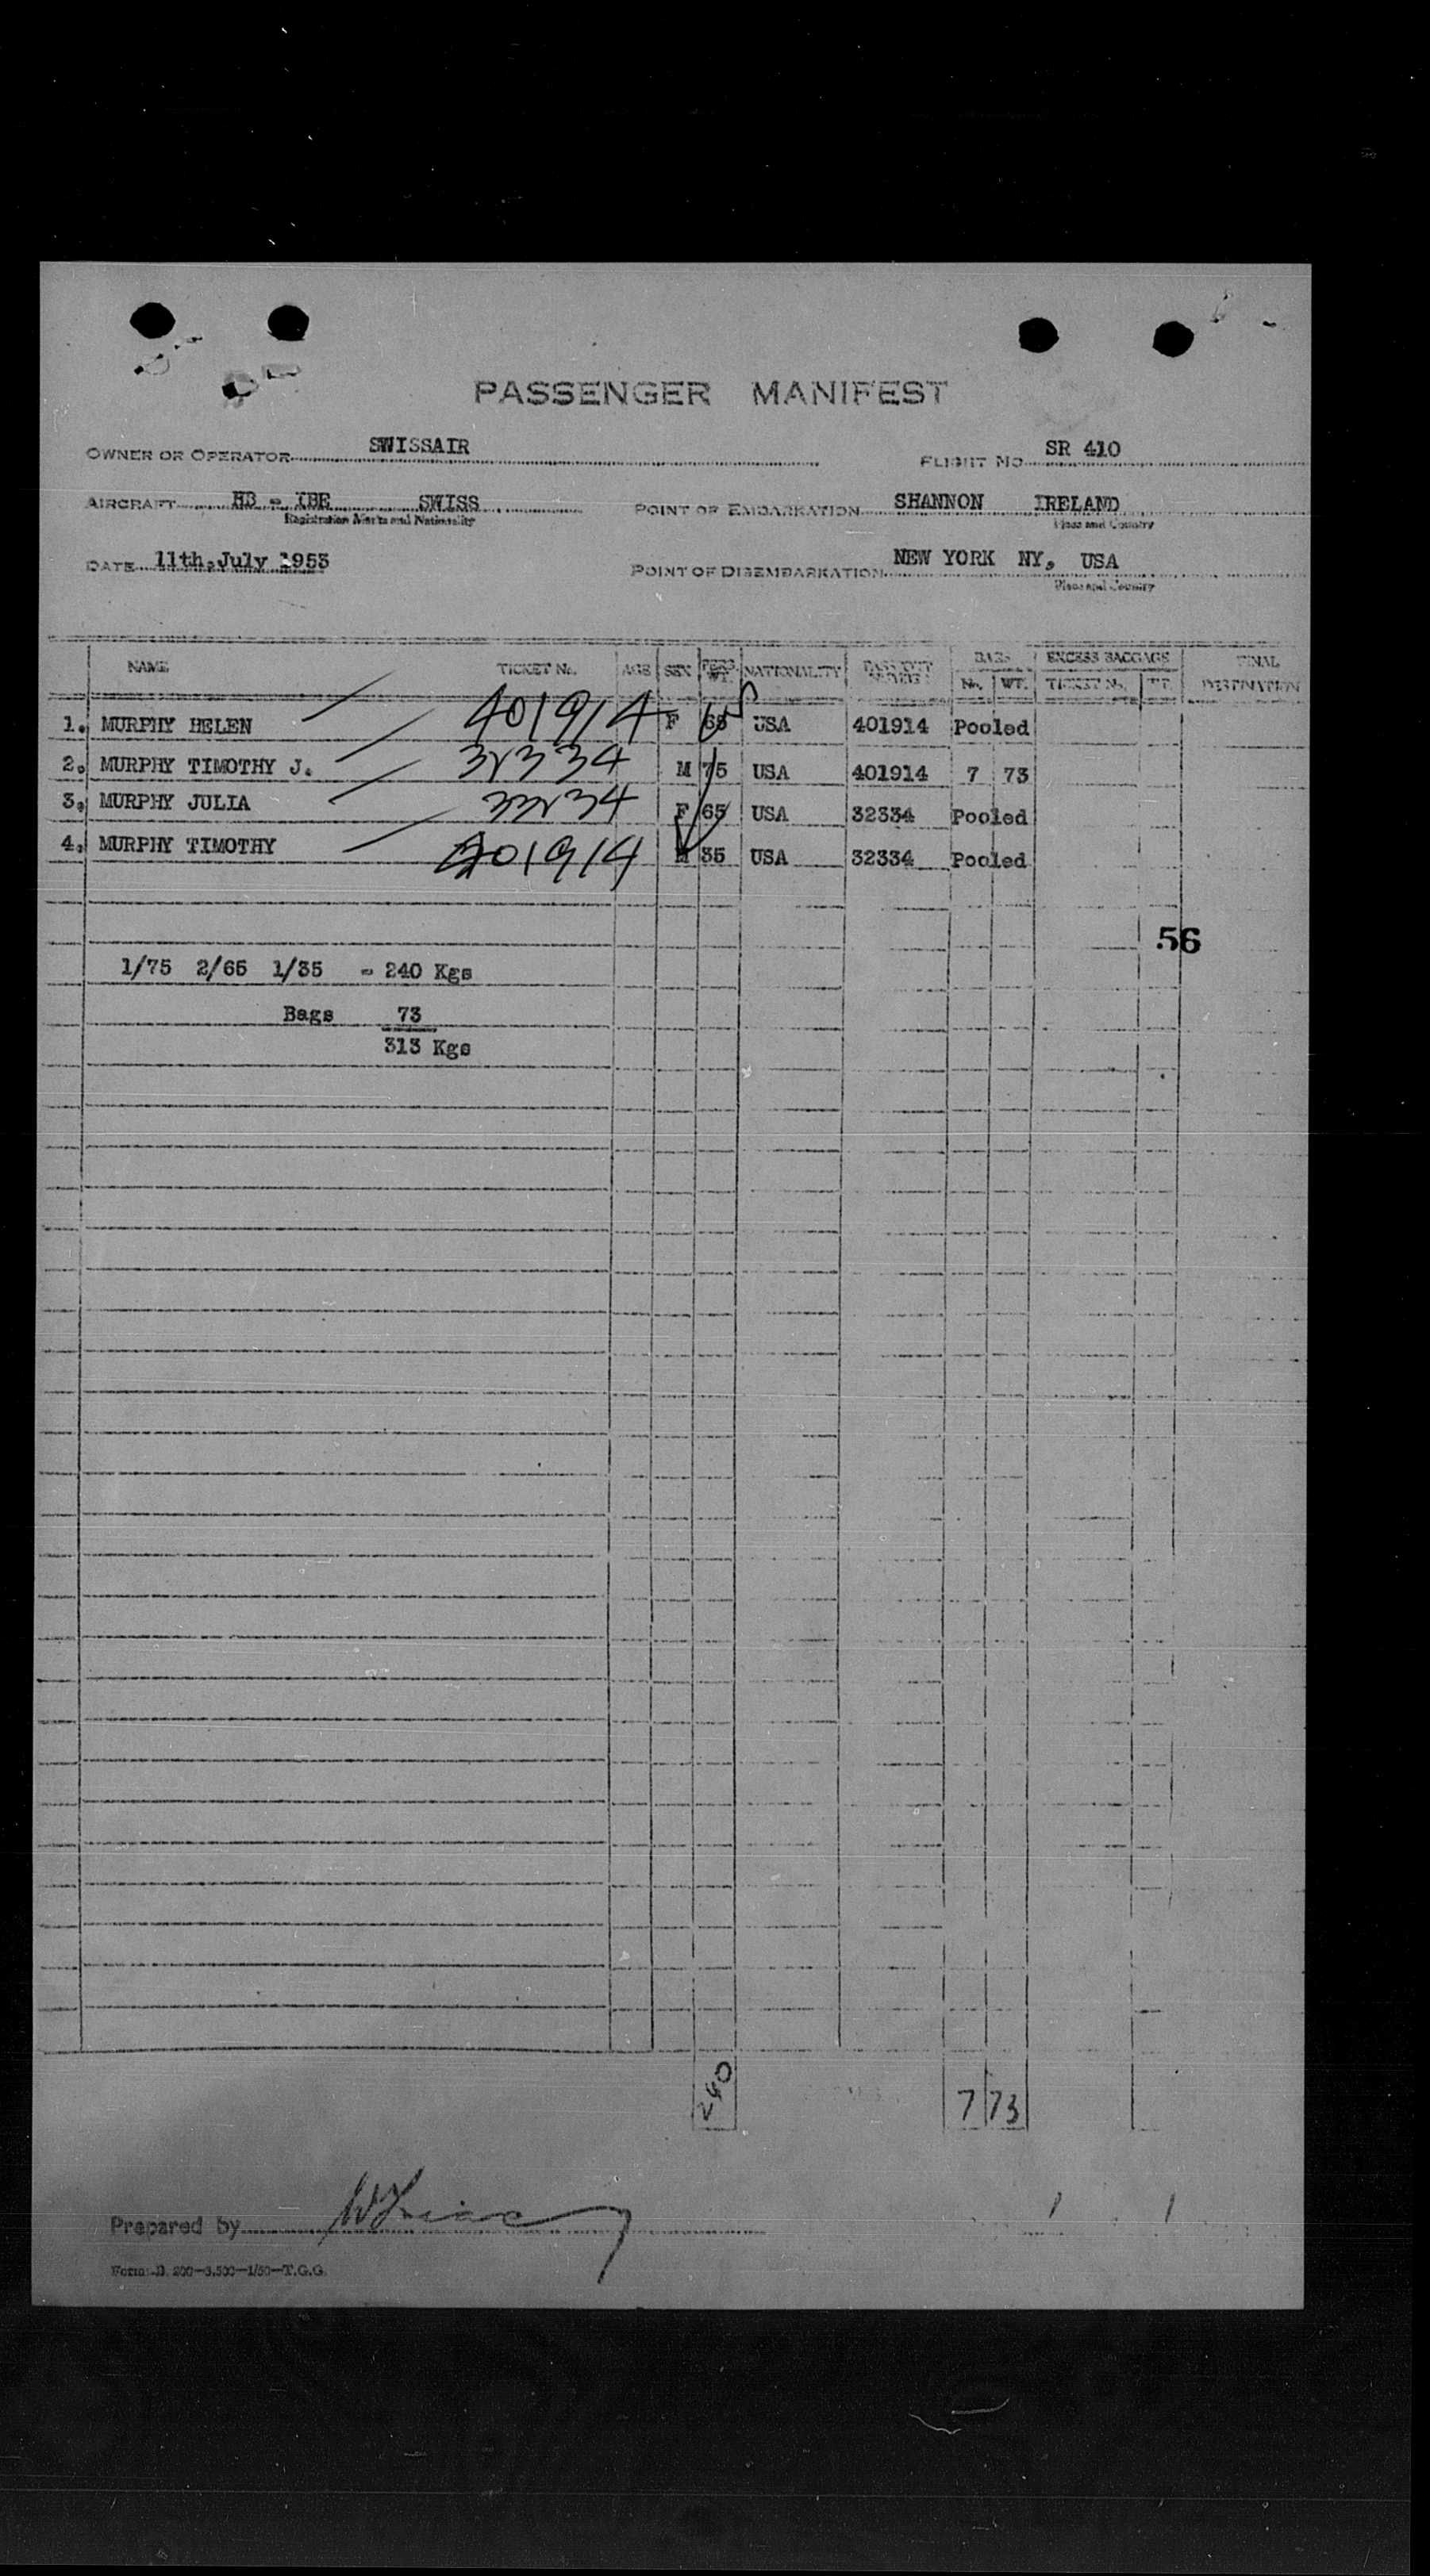 PASSENGER MANIFEST
OWNER OR OPERATOR SWISSAIR FLIGHT NO. SR 410
AIRCRAFT HB - IBE SWISS POINT OF EMBARKATION SHANNON IRELAND
Registration Marks and Nationality Place and Country
DATE 11th. July 1953 POINT OF DISEMBARKATION NEW YORK NY, USA
Place and Country
NAME TICKET No. AGE SEX PERS. WT. NATIONALITY PASSPORT NUMBER BAGS EXCESS BAGGAGE FINAL DESTINATION
No. WT. TICKET No. WT.
1. MURPHY HELEN 401914 F 65 USA 401914 Pooled
2. MURPHY TIMOTHY J. 32334 M 75 USA 401914 7 73
3. MURPHY JULIA 33234 F 65 USA 32334 Pooled
4. MURPHY TIMOTHY 401914 M 35 USA 32334 Pooled
56
1/75 2/65 1/35 - 240 Kgs
Bags 73
313 Kgs
240 7 73
Prepared by
Form: D. 200-3.500-1/50-T.G.G.